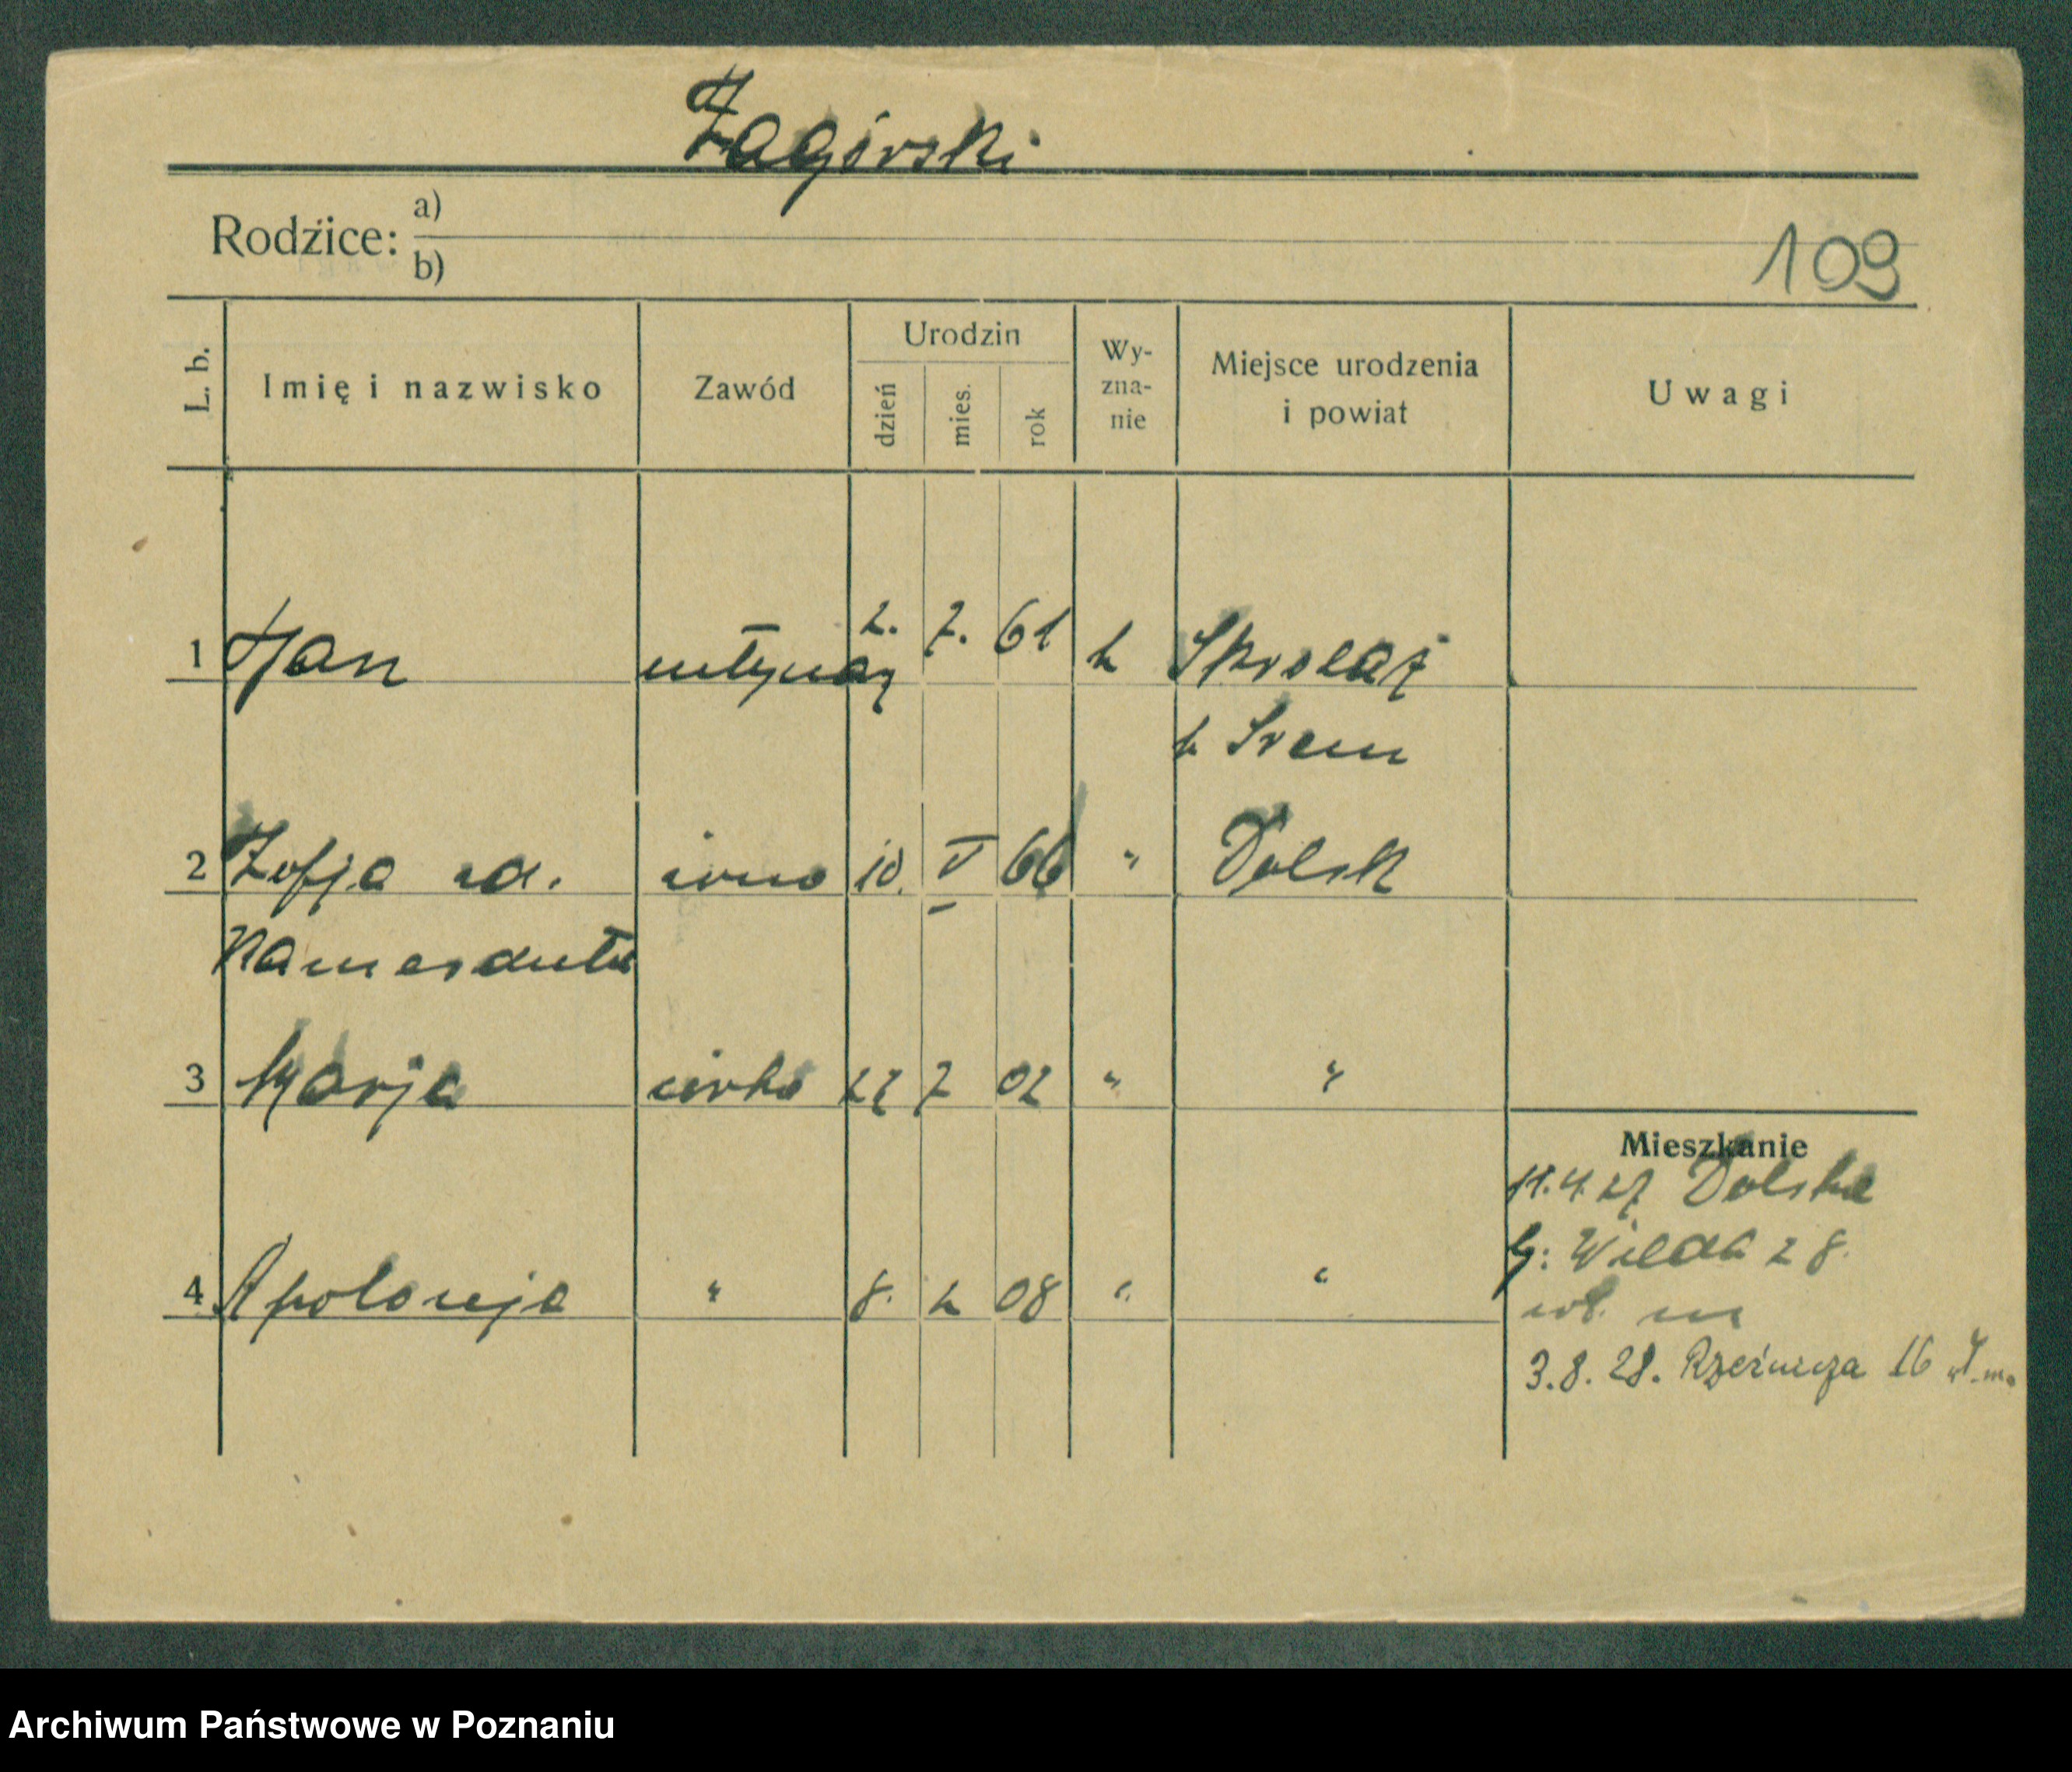 Zagórski
Rodzice: a)
b)
109
L. b. Imię i nazwisko Zawód Urodzin dzień mies. rok Wy-zna-nie Miejsce urodzenia i powiat Uwagi
1 Jan młynarz 2. 7. 61 k
p Śrem
2 Zofja żona 10. V 66 " Dolsk
3 Marja córka 27 7 02 " "
Mieszkanie
11.4.27 Dolska
4 Apolonja " 8. 2 08 " "
G: Wilda 28.
3.8.28. Rzeźnicza 16 wł. m.
Archiwum Państwowe w Poznaniu